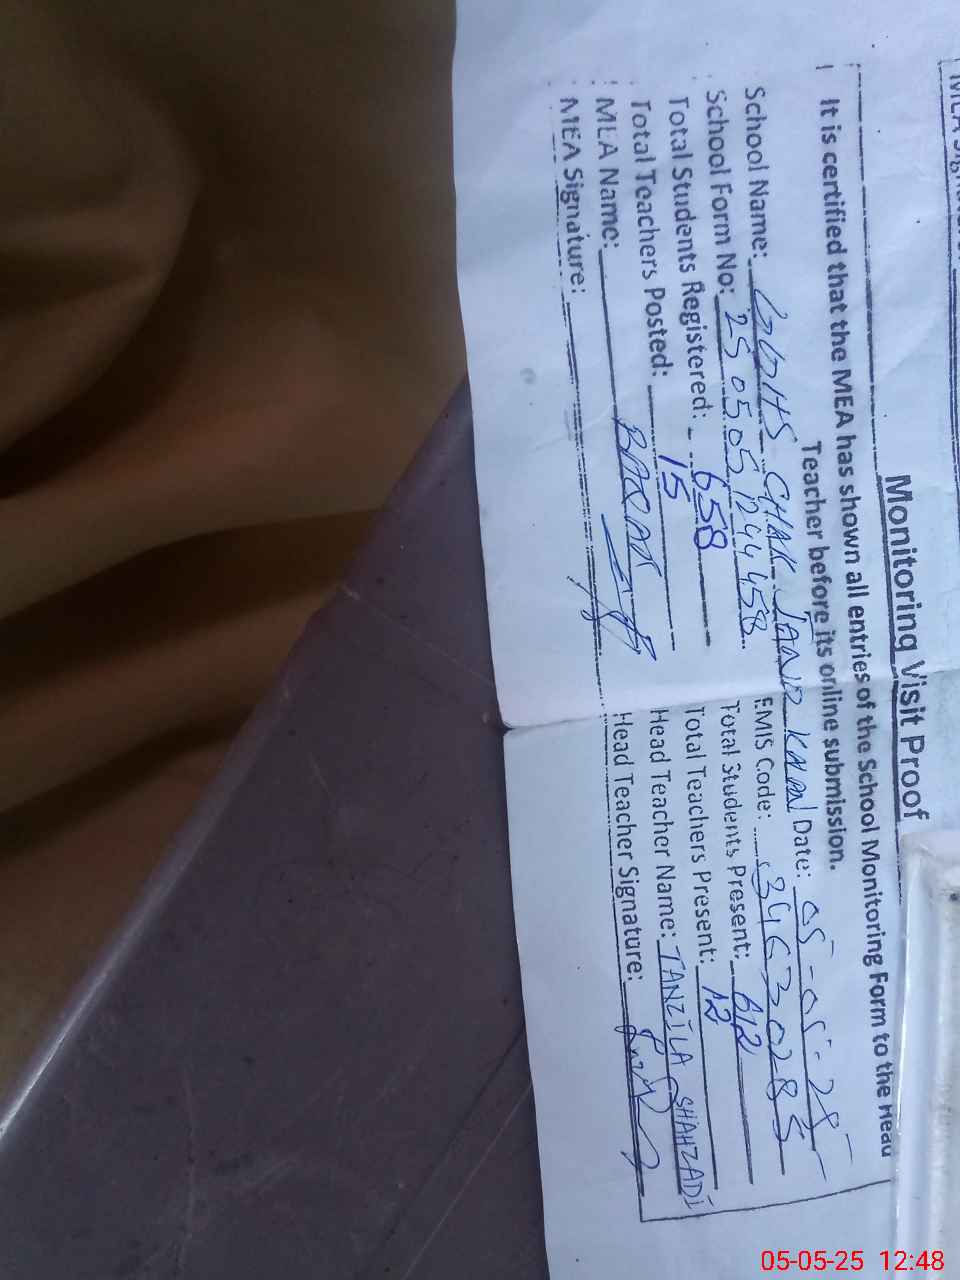 Monitoring Visit Proof
It is certified that the MEA has shown all entries of the School Monitoring Form to the Head
Teacher before its online submission.
School Name: GGHS CHAK JAND KHAN Date: 05-05-25
School Form No: 250505124458 EMIS Code: 34630285
Total Students Registered: 658 Total Students Present: 612
Total Teachers Posted: 15 Total Teachers Present: 12
MEA Name: Head Teacher Name: TANZILA SHAHZADI
MEA Signature: Head Teacher Signature:
05-05-25 12:48